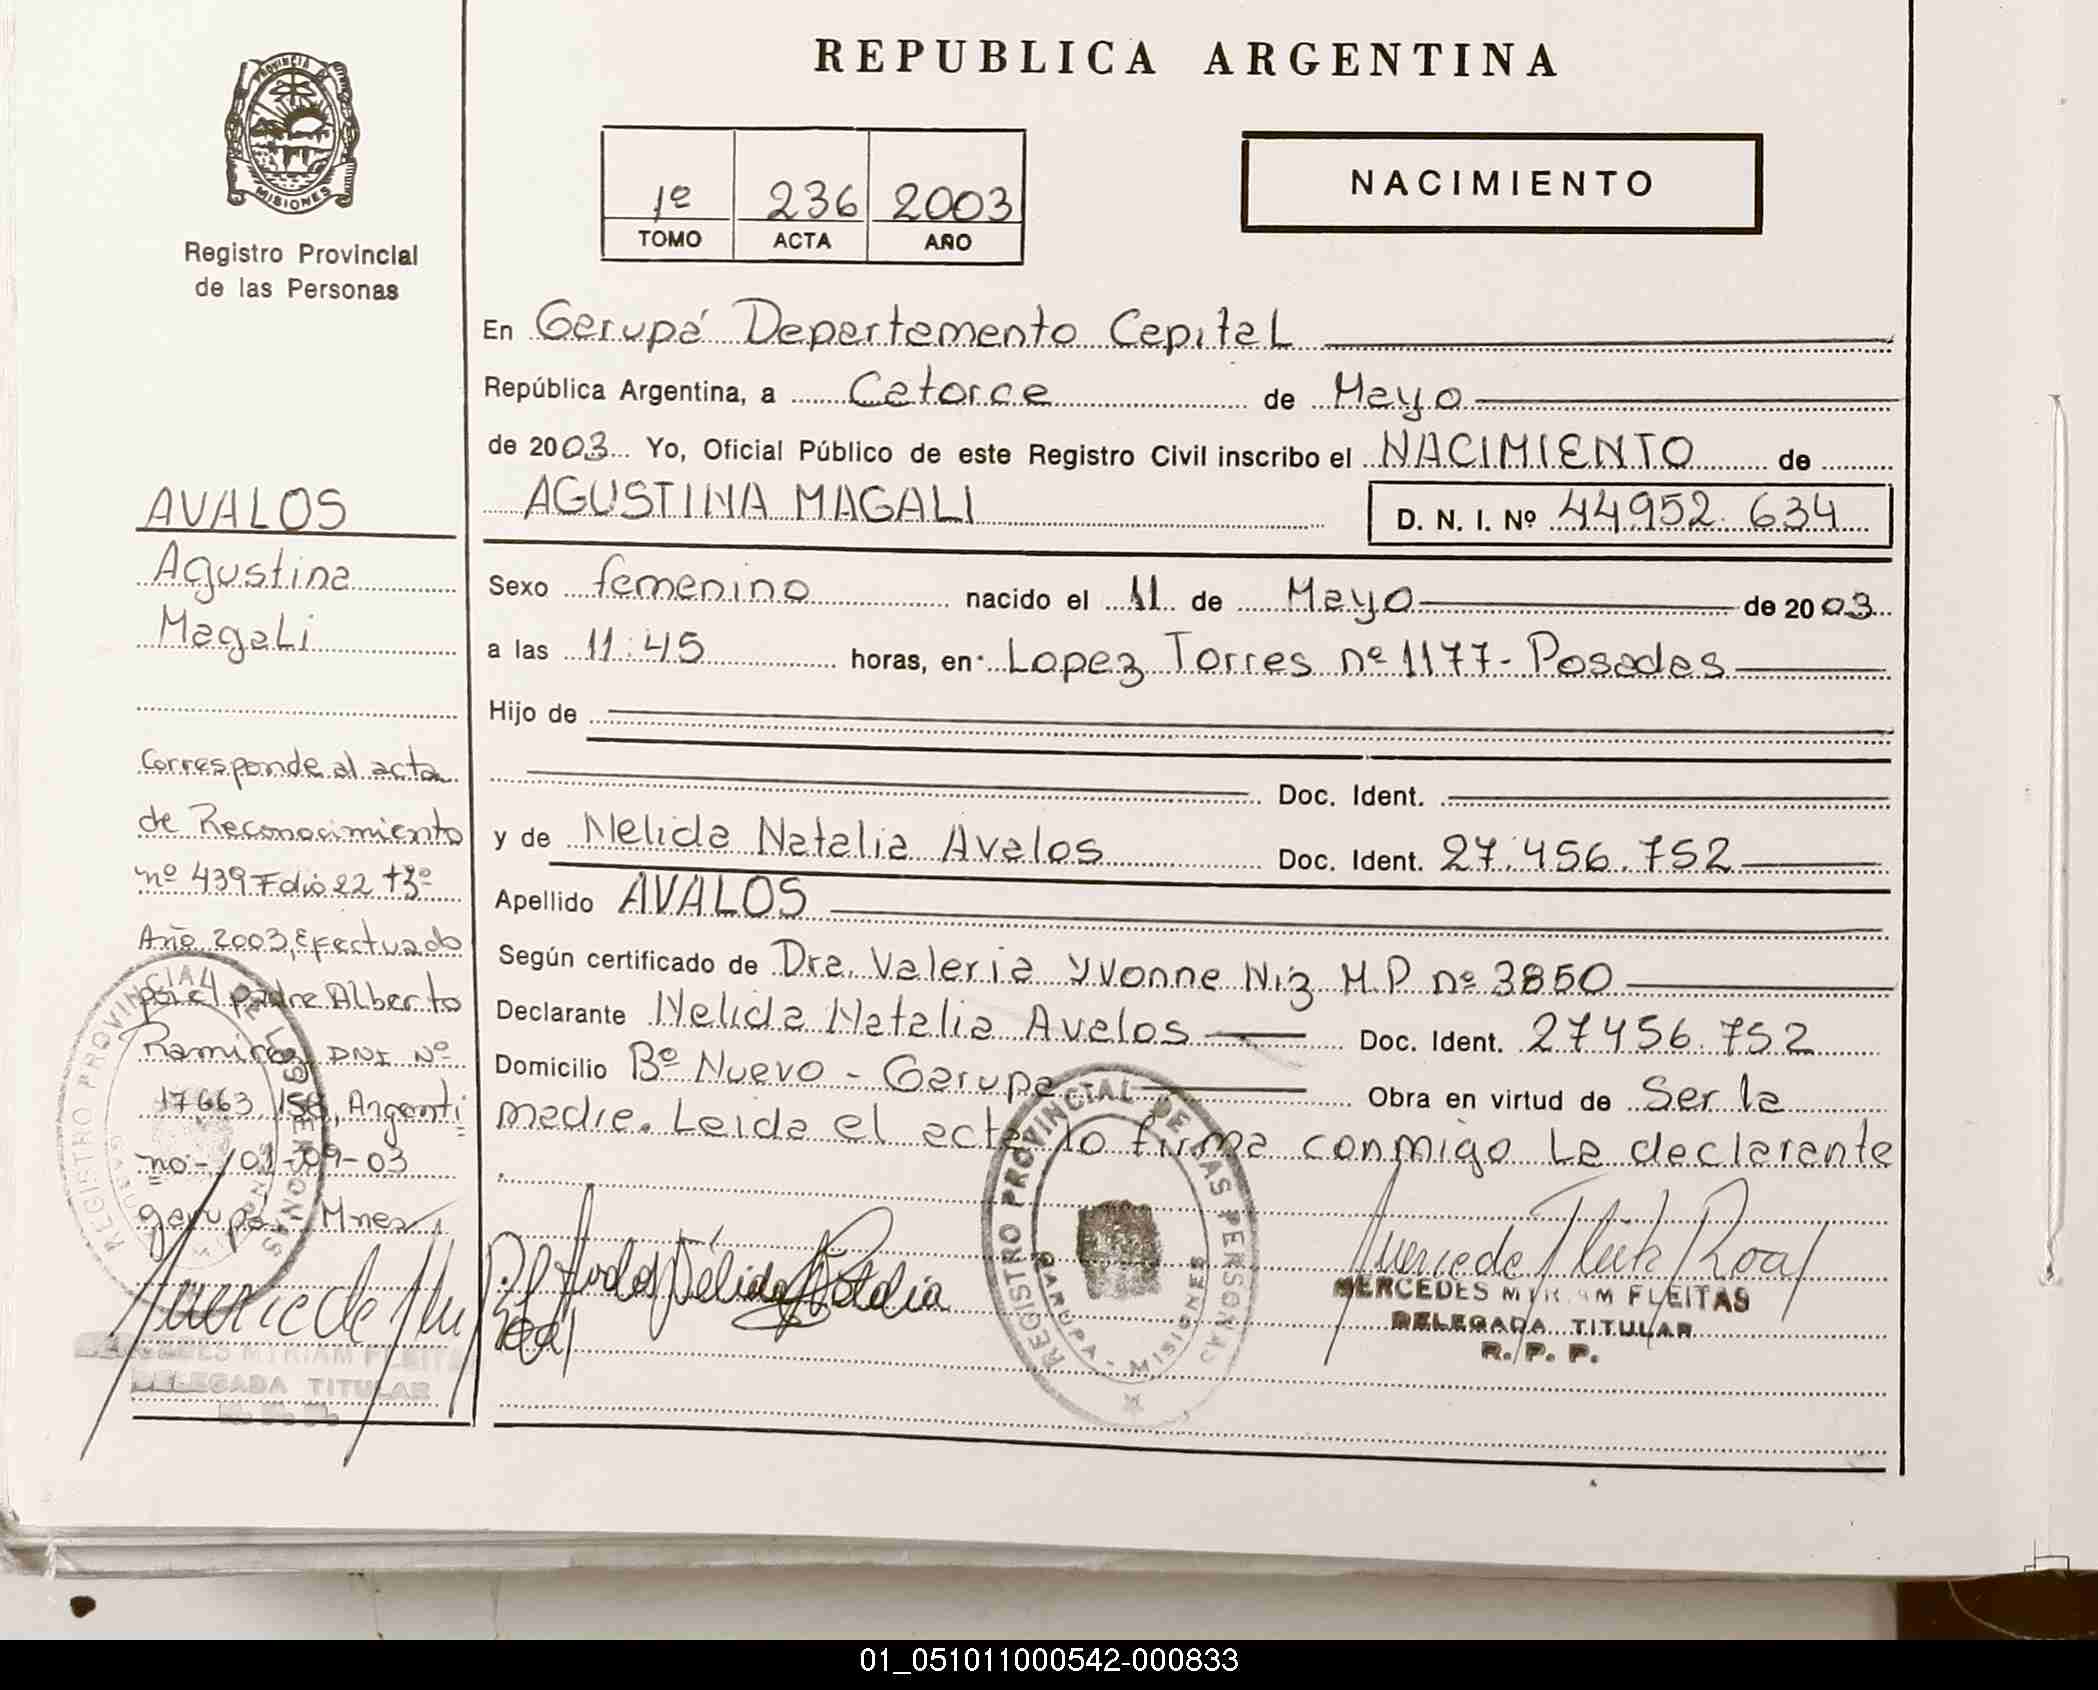 REPUBLICA ARGENTINA
PROVINCIA DE
MISIONES
Registro Provincial
de las Personas
1º 236 2003
TOMO ACTA AÑO
NACIMIENTO
En Garupá Departamento Capital
República Argentina, a Catorce de Mayo
de 2003 Yo, Oficial Público de este Registro Civil inscribo el NACIMIENTO de
AGUSTINA MAGALI D. N. I. Nº 44952.634
Sexo femenino nacido el 11 de Mayo de 2003
a las 11:45 horas, en Lopez Torres nº 1177- Posadas
Hijo de
Doc. Ident.
y de Nelida Natalia Avalos Doc. Ident. 27.456.752
Apellido AVALOS
Según certificado de Dra. Valeria Yvonne Niz M.P nº 3850
Declarante Nelida Natalia Avalos Doc. Ident. 27456.752
Domicilio Bº Nuevo - Garupa Obra en virtud de Ser la
madre. Leida el acta lo firma conmigo La declarante
AVALOS
Agustina
Magali
Corresponde al acta
de Reconocimiento
nº 439 Folio 22 tº3º
Año 2003, Efectuado
por el padre Alberto
Ramirez DNI Nº
17663.156, Argenti
no-/01-09-03
garupá - Mnes
MERCEDES MIRIAM FLEITAS
DELEGADA TITULAR
R. P. P.
Avalos Nélida Natalia
REGISTRO PROVINCIAL DE LAS PERSONAS
GARUPA - MISIONES
MERCEDES MIRIAM FLEITAS
DELEGADA TITULAR
R. P. P.
REGISTRO PROVINCIAL DE LAS PERSONAS
01_051011000542-000833